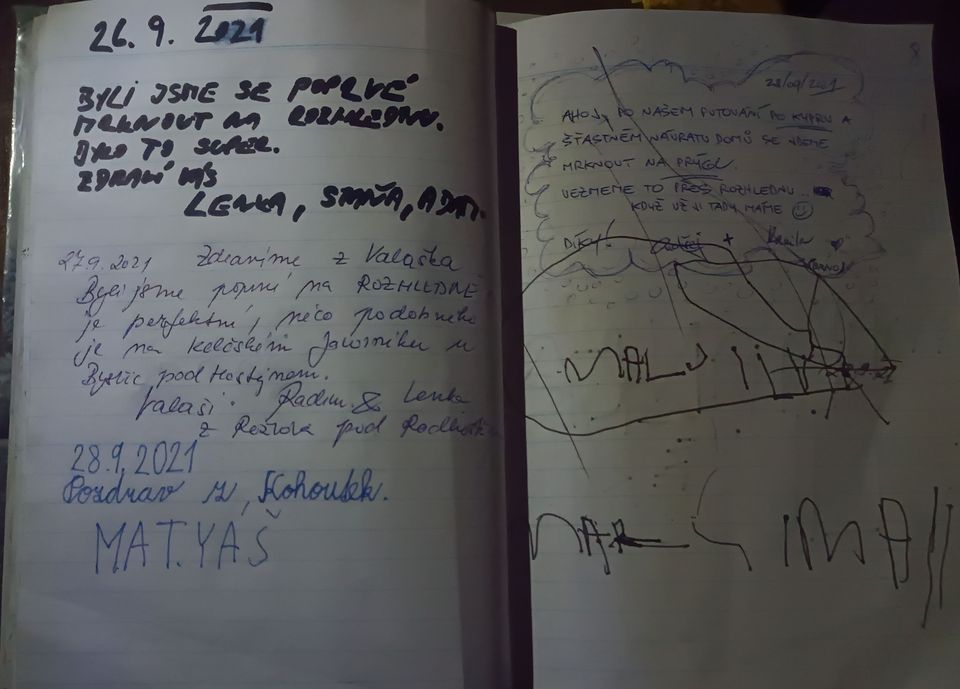 26. 9. 2021
BYLI JSME SE POPRVÉ
MRKNOUT NA ROZHLEDNU.
BYLO TO SUPER.
ZDRAVÍ VÁS
LENKA, SIMČA, ADAM.
27.9.2021 Zdravíme z Valašska
Byli jsme poprvé na ROZHLEDNĚ
je perfektní, něco podobného
je na Kelčském Javorníku u
Bystřic pod Hostýnem.
Valaši Radim & Lenka
z Rožnova pod Radhoštěm
28.9.2021
Pozdrav z, Kohoutek.
MATYÁŠ
8
28/09/2021
AHOJ, PO NAŠEM PUTOVÁNÍ PO KYPRU A
ŠŤASTNÉM NÁVRATU DOMŮ SE JDEME
MRKNOUT NA PRÝGL.
VEZMEME TO PŘES ROZHLEDNU...
KDYŽ UŽ JI TADY MÁME
DÍKY! +